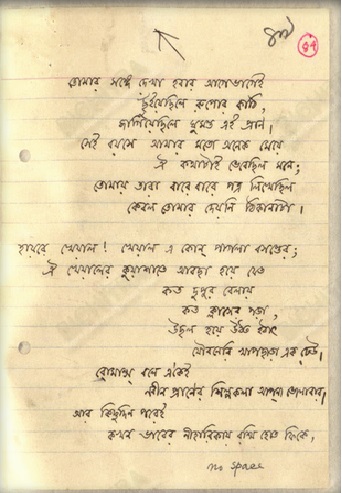 ৪৭
তোমার সঙ্গে দেখা হবার আগেভাগেই
ছুঁইয়েছিলে রূপোর কাঠি,
জাগিয়েছিলে ঘুমন্ত এই প্রাণ।
সেই বয়সে আমার মতো অনেক মেয়ে
ঐ কথাটাই ভেবেছিল মনে;
তোমায় তারা বারে বারে পত্র লিখেছিল
কেবল তোমায় দেয়নি ঠিকানাটা।
হায়রে খেয়াল! খেয়াল এ কোন্ পাগলা বসন্তের;
ঐ খেয়ালের কুয়াশাতে আবছা হয়ে যেত
কত দুপুর বেলায়
কত ক্লাসের পড়া,
উছল হয়ে উঠত হঠাৎ
যৌবনেরি খাপছাড়া এক ঢেউ।
রোমান্স বলে একেই
নবীন প্রাণের শিল্পকলা আপনা ভোলাবার।
আর কিছুদিন পরেই
কখন ভাবের নীহারিকায় রশ্মি হত ফিকে,
no space